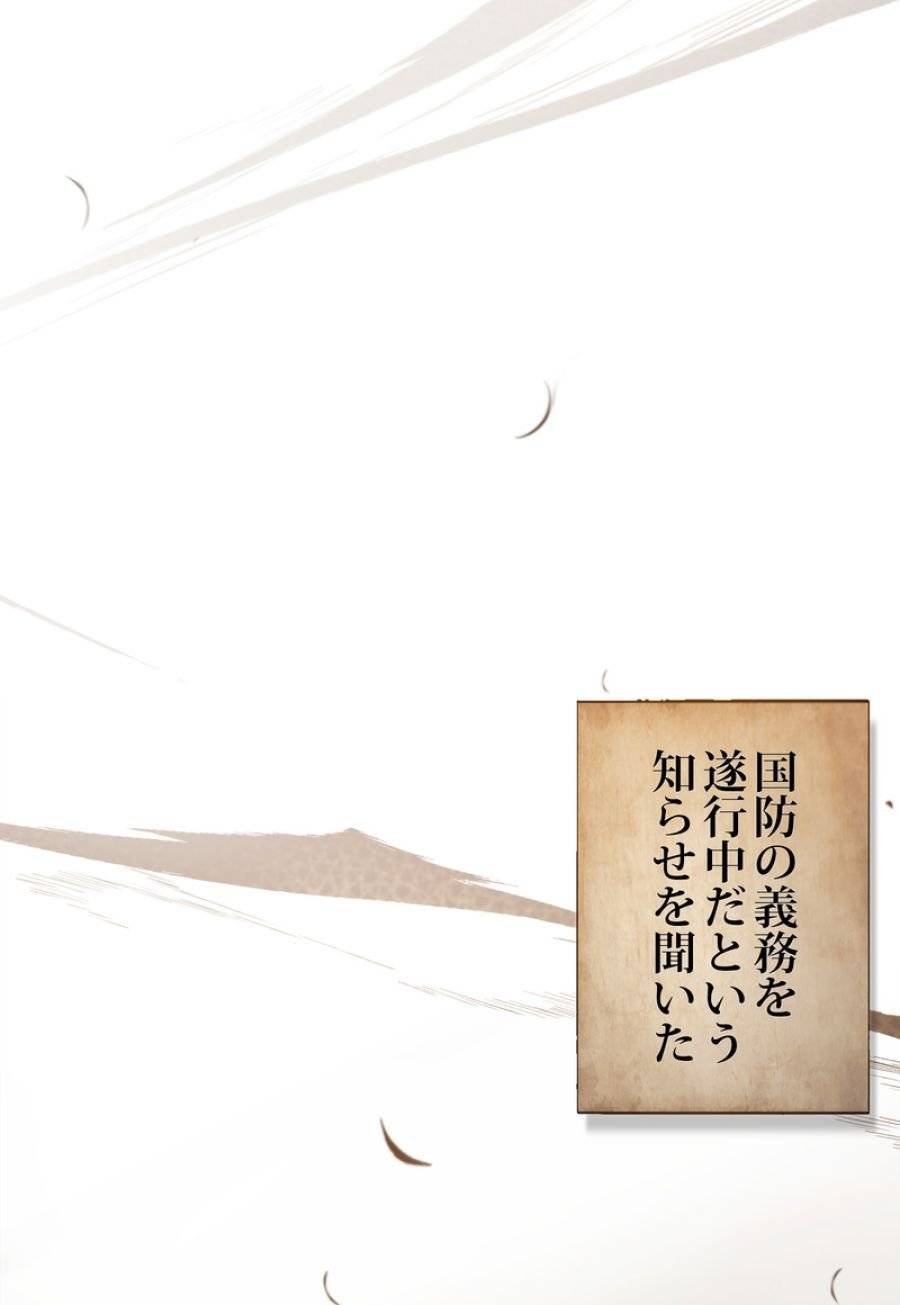 国防の義務を
遂行中だという
知らせを聞いた